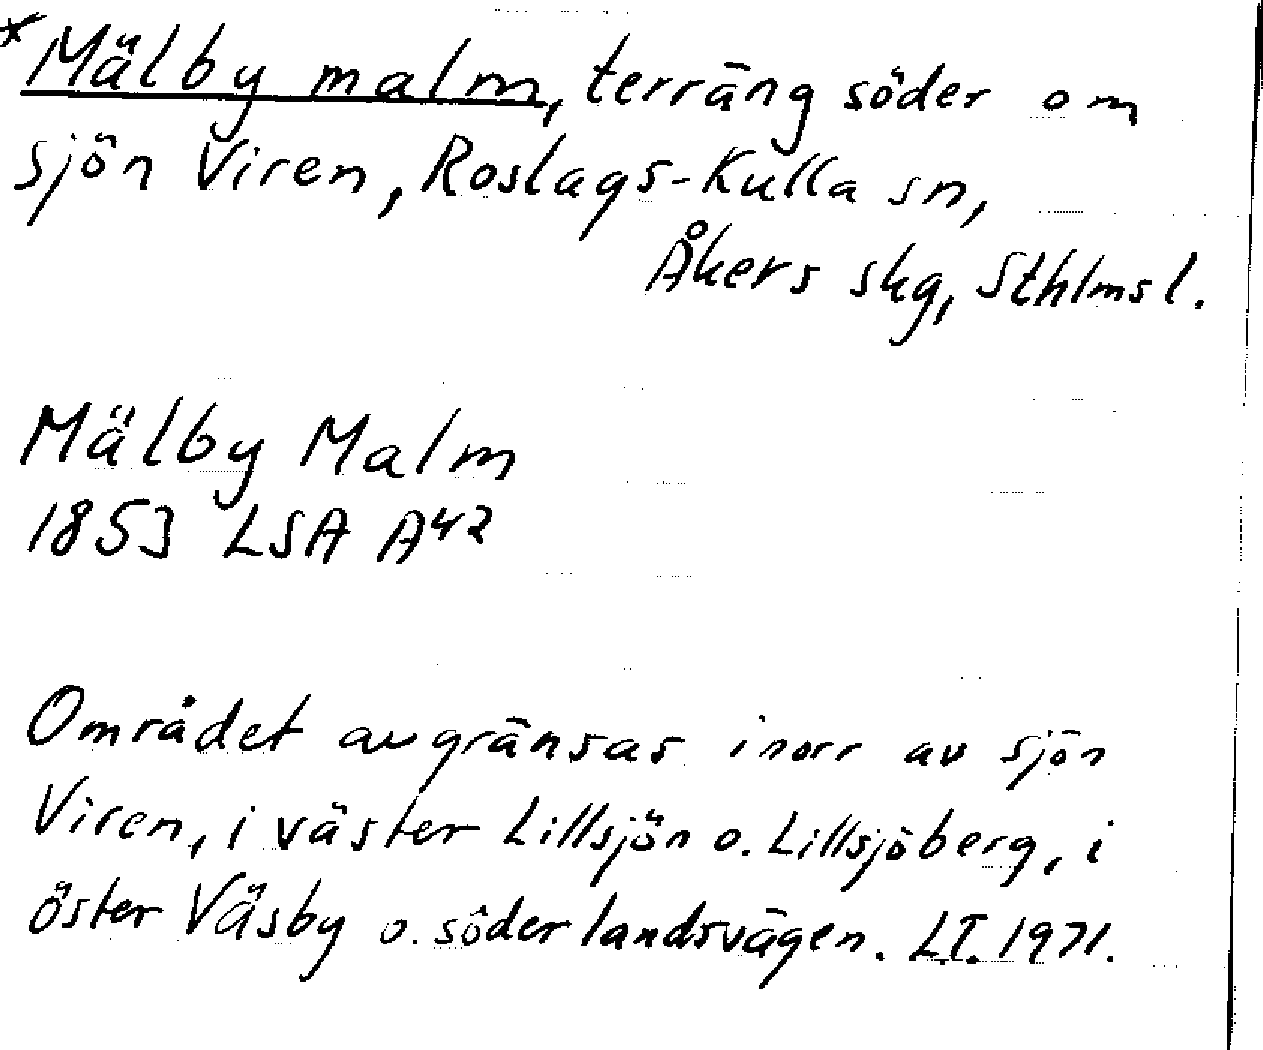 *Mälby malm, terräng söder om
sjön Viren, Roslags-Kulla sn,
Åkers skg, Sthlms l.
Mälby Malm
1853 LSA A42
Området avgränsas i norr av sjön
Viren, i väster Lillsjön o. Lillsjöberg, i
öster Väsby o. söder landsvägen. L.T. 1971.